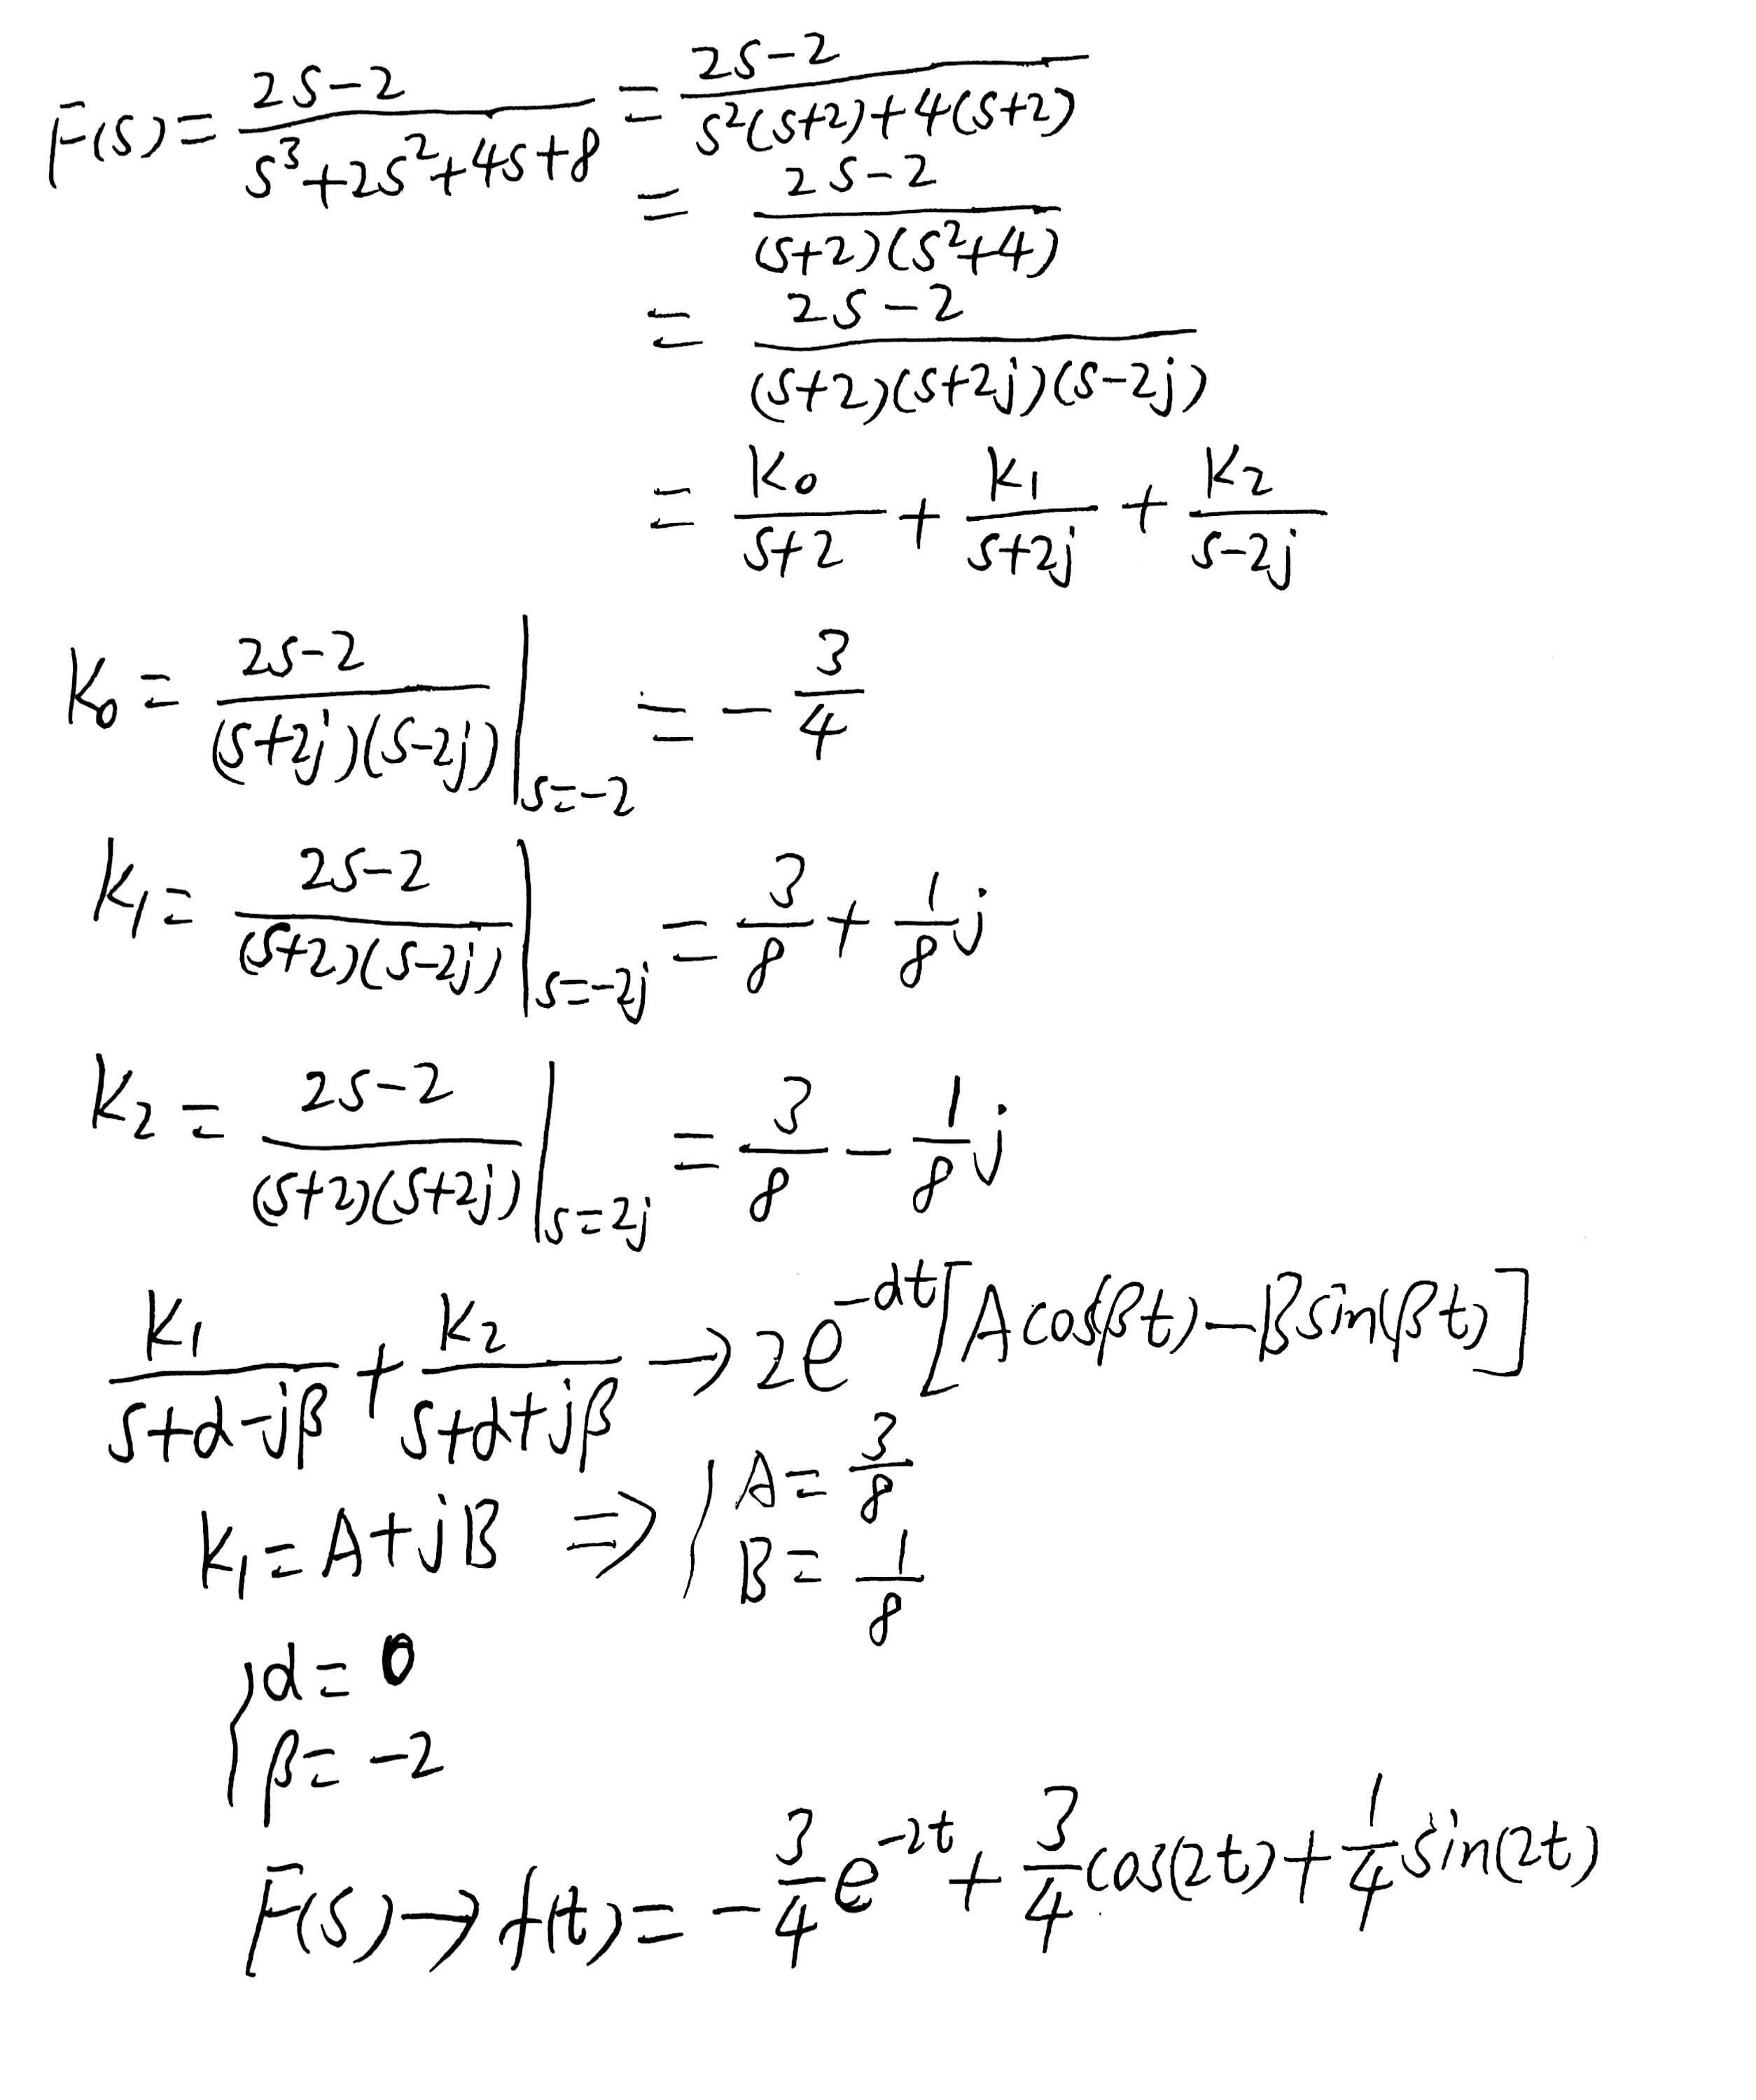 F(s) = \frac{2s-2}{s^3+2s^2+4s+8} = \frac{2s-2}{s^2(s+2)+4(s+2)}
= \frac{2s-2}{(s+2)(s^2+4)}
= \frac{2s-2}{(s+2)(s+2j)(s-2j)}
= \frac{K_0}{s+2} + \frac{K_1}{s+2j} + \frac{K_2}{s-2j}
K_0 = \frac{2s-2}{(s+2j)(s-2j)} |_{s=-2} = -\frac{3}{4}
K_1 = \frac{2s-2}{(s+2)(s-2j)} |_{s=-2j} = \frac{3}{8} + \frac{1}{8}j
K_2 = \frac{2s-2}{(s+2)(s+2j)} |_{s=2j} = \frac{3}{8} - \frac{1}{8}j
\frac{K_1}{s+α-jβ} + \frac{K_2}{s+α+jβ} → 2e^{-αt}[A cos(βt) - B sin(βt)]
K_1 = A+jB ⇒ { A = \frac{3}{8}
B = \frac{1}{8}
{ α = 0
β = -2
F(s) → f(t) = -\frac{3}{4}e^{-2t} + \frac{3}{4}cos(2t) + \frac{1}{4}sin(2t)